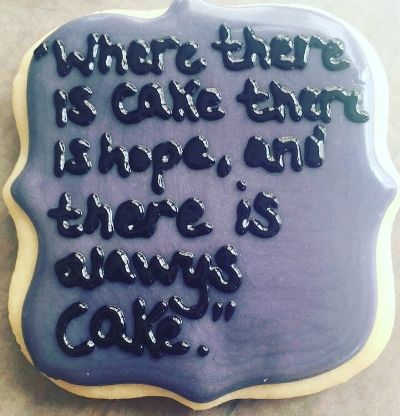 "Where there
is cake there
is hope, and
there is
always
cake."